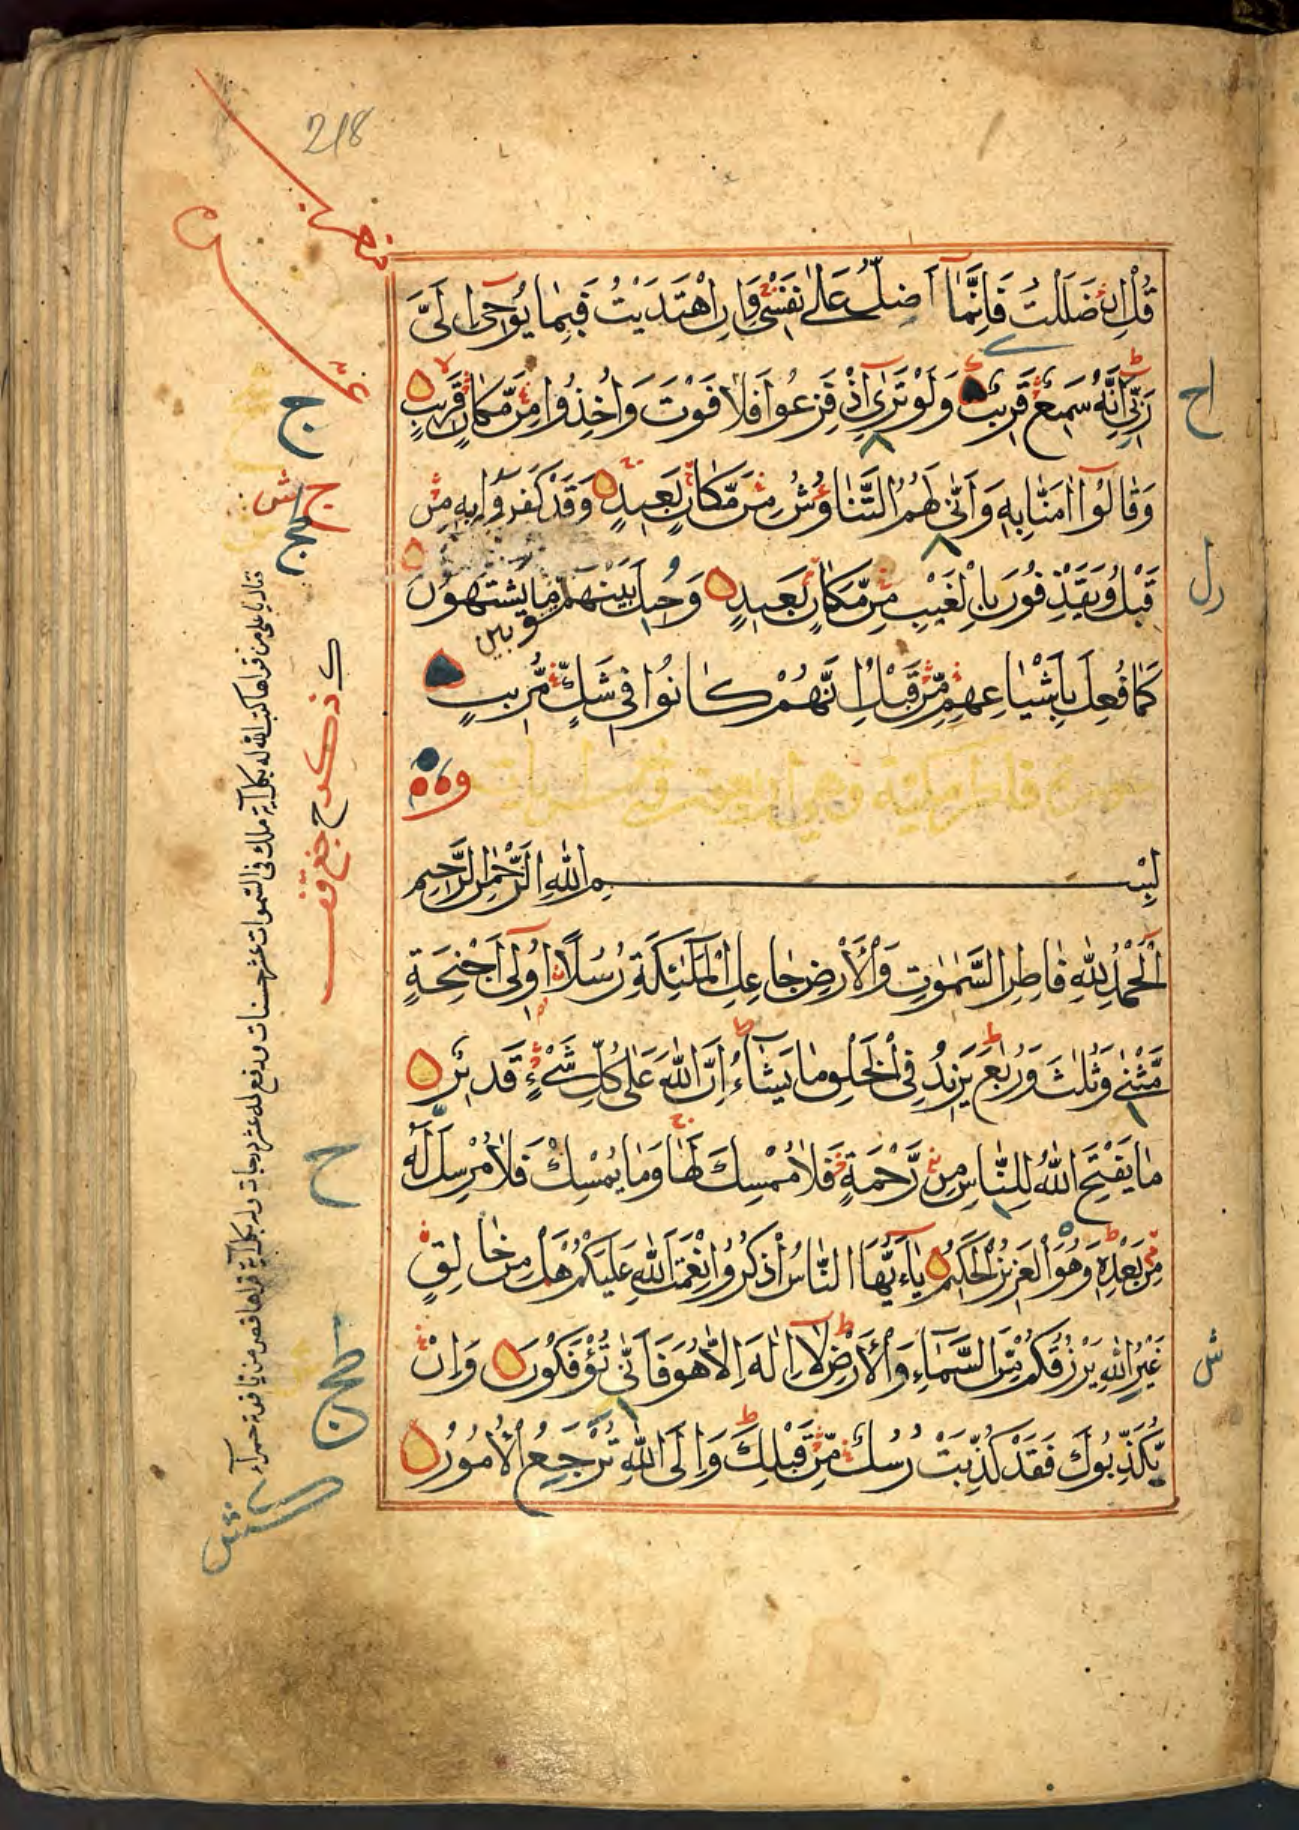 218
قُلْ إِنْ ضَلَلْتُ فَإِنَّمَا أَضِلُّ عَلَىٰ نَفْسِي وَإِنِ اهْتَدَيْتُ فَبِمَا يُوحِي إِلَيَّ
رَبِّي إِنَّهُ سَمِيعٌ قَرِيبٌ وَلَوْ تَرَىٰ إِذْ فَزِعُوا فَلَا فَوْتَ وَأُخِذُوا مِنْ مَّكَانٍ قَرِيبٍ
وَقَالُوا آمَنَّا بِهِ وَأَنَّىٰ لَهُمُ التَّنَاوُشُ مِنْ مَّكَانٍ بَعِيدٍ وَقَدْ كَفَرُوا بِهِ مِنْ
قَبْلُ وَيَقْذِفُونَ بِالْغَيْبِ مِنْ مَّكَانٍ بَعِيدٍ وَحِيلَ بَيْنَهُمْ وَبَيْنَ مَا يَشْتَهُونَ
كَمَا فُعِلَ بِأَشْيَاعِهِمْ مِّنْ قَبْلُ إِنَّهُمْ كَانُوا فِي شَكٍّ مُّرِيبٍ
سورة فاطر مكية وهي
بِسْمِ اللَّهِ الرَّحْمَٰنِ الرَّحِيمِ
الْحَمْدُ لِلَّهِ فَاطِرِ السَّمَٰوَٰتِ وَالْأَرْضِ جَاعِلِ الْمَلَٰئِكَةِ رُسُلًا أُولِي أَجْنِحَةٍ
مَّثْنَىٰ وَثُلَٰثَ وَرُبَٰعَ يَزِيدُ فِي الْخَلْقِ مَا يَشَاءُ إِنَّ اللَّهَ عَلَىٰ كُلِّ شَيْءٍ قَدِيرٌ
مَا يَفْتَحِ اللَّهُ لِلنَّاسِ مِنْ رَّحْمَةٍ فَلَا مُمْسِكَ لَهَا وَمَا يُمْسِكْ فَلَا مُرْسِلَ لَهُ
مِنْ بَعْدِهِ وَهُوَ الْعَزِيزُ الْحَكِيمُ يَا أَيُّهَا النَّاسُ اذْكُرُوا نِعْمَتَ اللَّهِ عَلَيْكُمْ هَلْ مِنْ خَالِقٍ
غَيْرُ اللَّهِ يَرْزُقُكُمْ مِّنَ السَّمَاءِ وَالْأَرْضِ لَا إِلَٰهَ إِلَّا هُوَ فَأَنَّىٰ تُؤْفَكُونَ وَإِنْ
يُّكَذِّبُوكَ فَقَدْ كُذِّبَتْ رُسُلٌ مِّنْ قَبْلِكَ وَإِلَى اللَّهِ تُرْجَعُ الْأُمُورُ
كتب الله له بكل آية ملك في السموات عشر حسنات ورفع له عشر درجات وله بكل آية